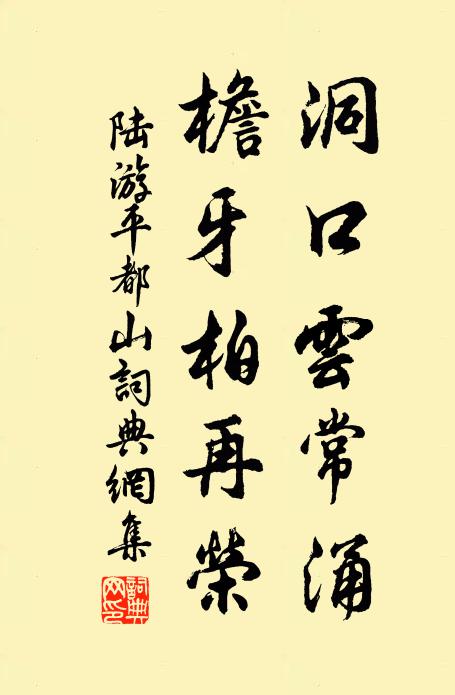 洞口雲常涌
檐牙柏再榮
陆游平都山詞典網集
詞典網印